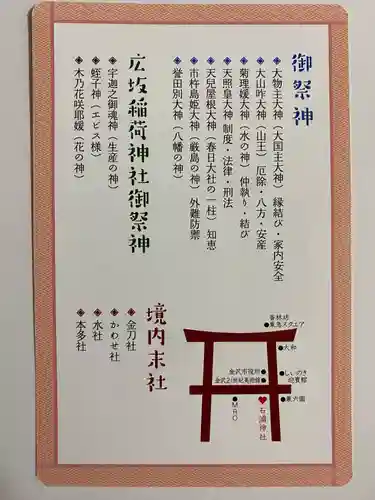 御祭神
◈大物主大神（大国主大神）縁結び・家内安全
◈大山咋大神（山王）厄除・八方・安産
◈菊理媛大神（水の神）仲執り・結び
◈天照皇大神 制度・法律・刑法
◈天兒屋根大神（春日大社の一柱）知恵
◈市杵島姫大神（厳島の神）外難防禦
◈誉田別大神（八幡の神）
広坂稲荷神社御祭神
◈宇迦之御魂神（生産の神）
◈蛭子神（エビス様）
◈木乃花咲耶媛（花の神）
境内末社
◈金刀社
◈かわせ社
◈水社
◈本多社
香林坊
●東急スクエア
●大和
金沢市役所●
金沢21世紀美術館●
●しいのき
迎賓館
●兼六園
●MRO
♥石浦神社